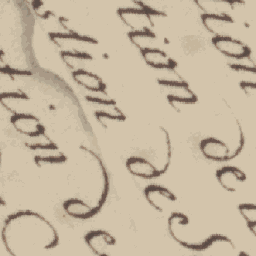 tion
tion de
stion de S
tion de
C